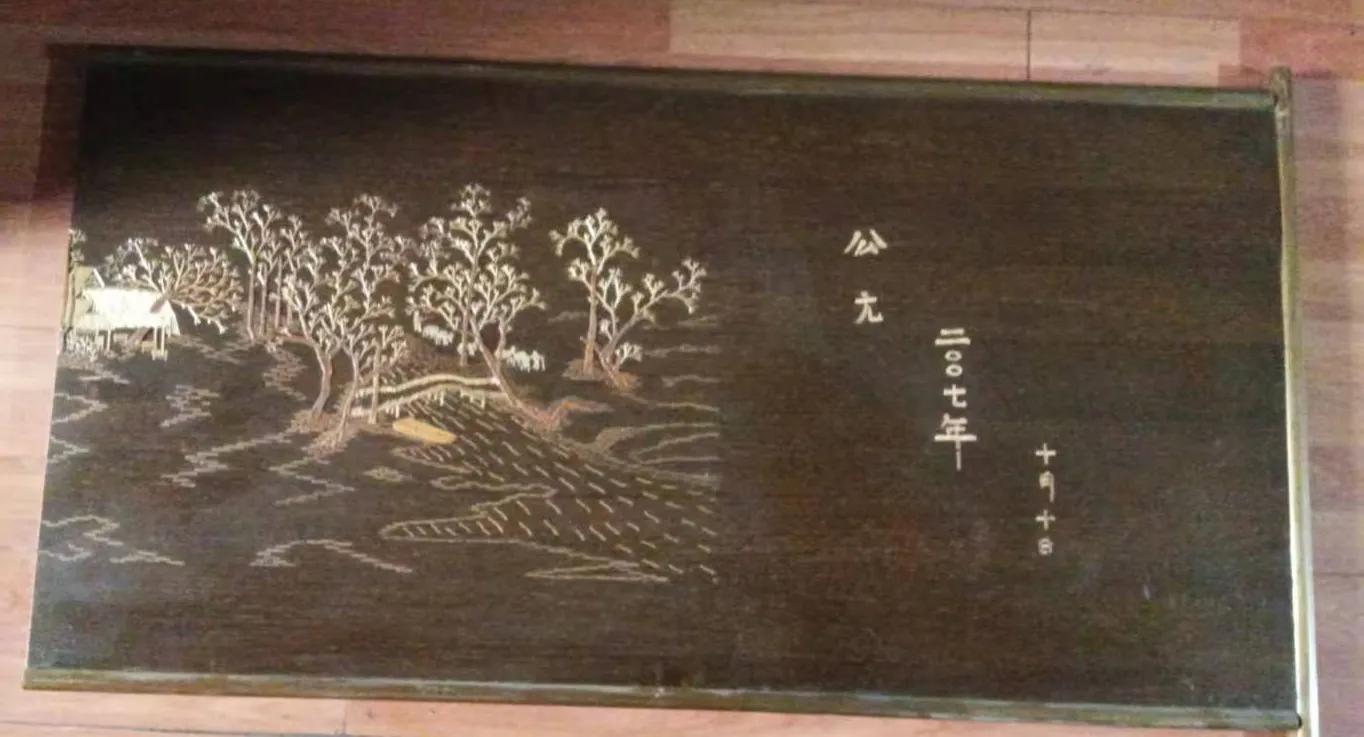 公元
二〇〇七年
十月十日